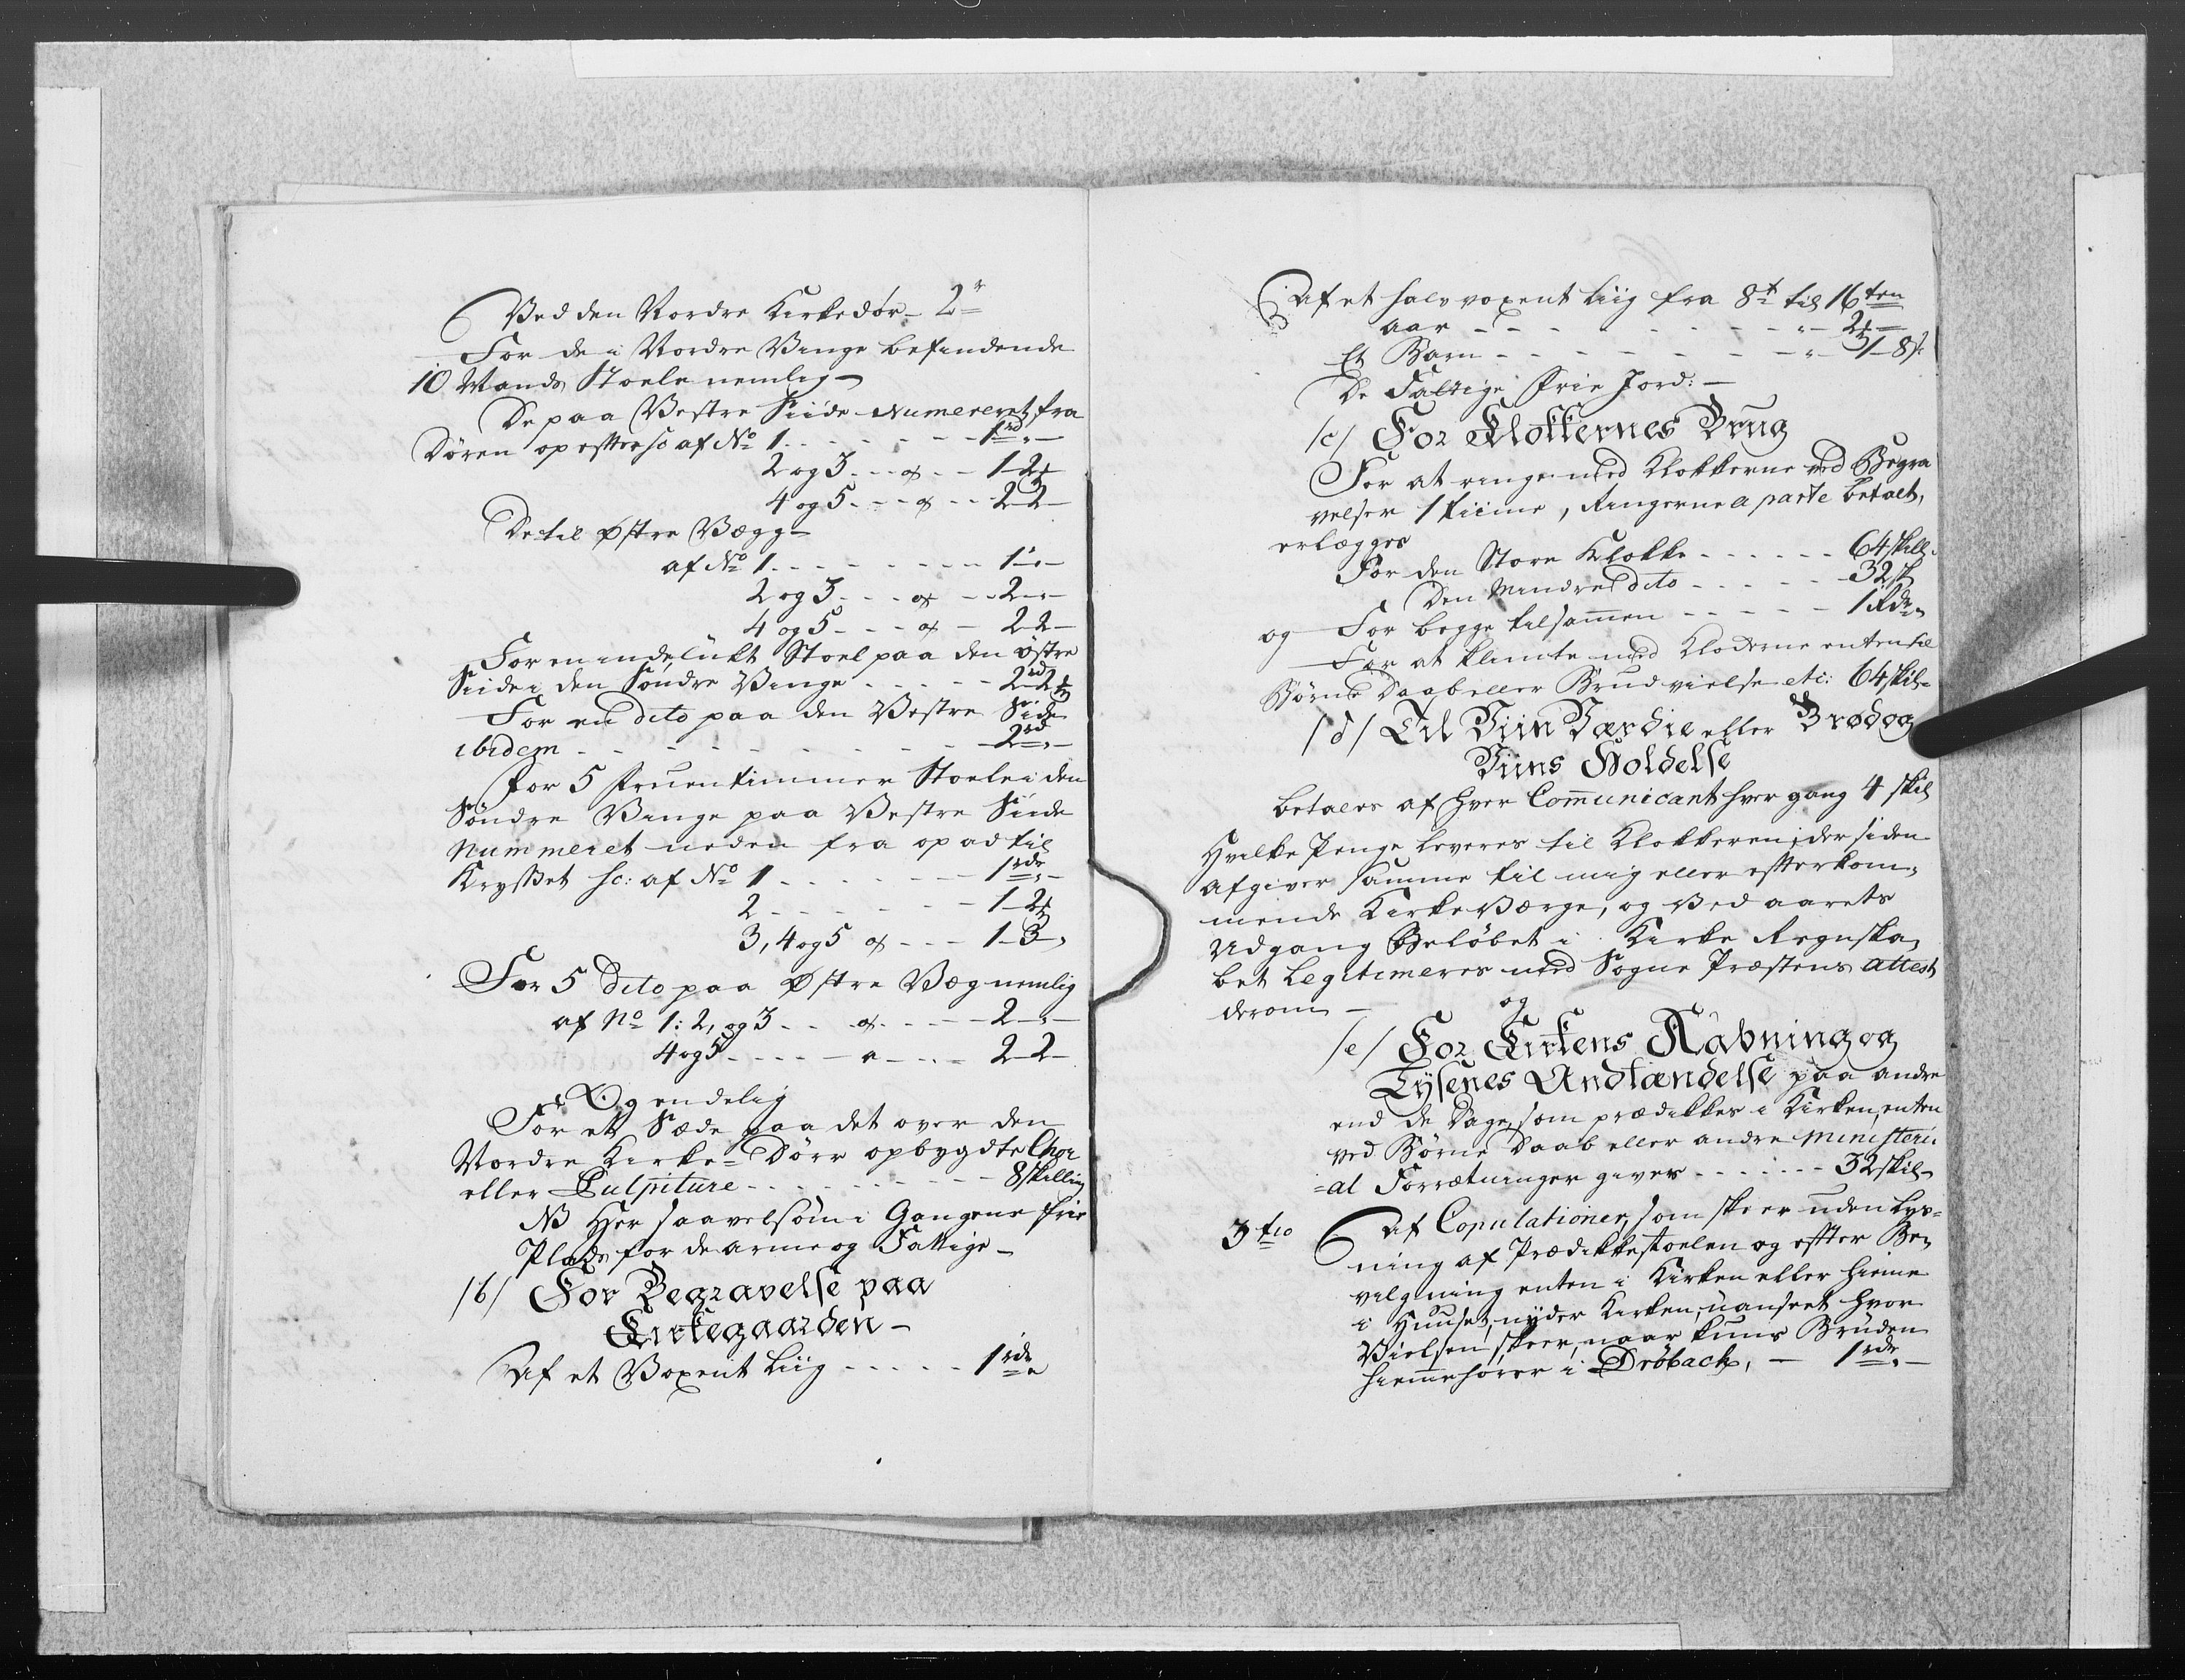 Ved den Nordre Kirkedør - 2r
For de i Nordre Vinge befindende
10 Mands Stoele nemlig -
De paa Vestre Siide Numereret fra
Døren op efter sc af No 1 - - - 1rd " -
2 og 3 - - a - - 1-2½
4 og 5 - - a - - 2-2 -
De til Østre Væg -
af No 1 - - - - 1 " -
2 og 3 - - - a - - 2 - " -
4 og 5 - - - a - 2-2 -
For en indelukt Stoel paa den østre
Siide i den Søndre Vinge - - - - 2rd 2½
For en dito paa den Vestre Side
ibidem - - - - - - - 2rd " -
For 5 Fruentimmer Stoele i den
Søndre Vinge paa Vestre Siide
Nummeret neden fra op ad til
Krysset sc: af No 1 - - - - 1rdr " -
2 - - - - - 1-2½
3, 4 og 5 a - - - 1-3 - "
For 5 Dito paa Østre Væg nemlig
af No 1: 2, og 3 - - a - - - 2 - " -
4 og 5 - - - - a - - - 2-2 -
Og endelig
For et Sæde paa det over den
Nordre Kirke-Dørr opbygdte Chor
eller Pulpiture - - - - - 8 skilling
NB Her saavelsom i Gangene frie
Plads for de arme og Fattige -
/b/ For Begravelse paa
Kirkegaarden -
Af et Voxent Liig - - - - - 1rdr "
Af et halv voxent Liig fra 8te til 16ten
aar - - - - - - - " - 2½ -
Et Barn - - - - - - - " - 1-8s
De Fattige frie Jord: -
/c/ For Klokkernes Brug
For at ringe med Klokkerne ved Begra
velser 1 Tiime, Ringerne a parte betalt,
erlægges
For den Store Klokke - - - - - 64 skill.
Den Mindre Dito - - - - - 32 sk
og For begge tilsammen - - - - - 1 Rdr "
For at klimte med Klokerne enten til
Børne Daab eller Brud vielse etc: 64 skil-
/d/ Til Viin Værdie eller Brød og
Viins Holdelse
betaler af hver Communicant hver gang 4 skil
Hvilke Penge leveres til Klokkeren, der siden
afgiver samme til mig eller efterkom-
mende Kirke Værge, og Ved aarets
Udgang Beløbet i Kirke Regnska-
bet Legitimeres med Sogne Præstens Attest
derom -
og
/e/ For Kirkens Aabning og
Lysenes Andtændelse paa andre
end de Dage, som prædikkes i Kirken, enten
ved Børne Daab eller andre Ministeri-
=al Forrætninger gives - - - - - 32 skil-
3tio Af Copulationer, som skeer uden Lys-
ning af Prædikkestoelen og efter Be-
vilgning enten i Kirken eller hieme
i Huuset, nyder Kirken, uanseet hvor
Vielsen skeer, naar kuns Bruden
hiemmehører i Drøback, - 1rdr " -